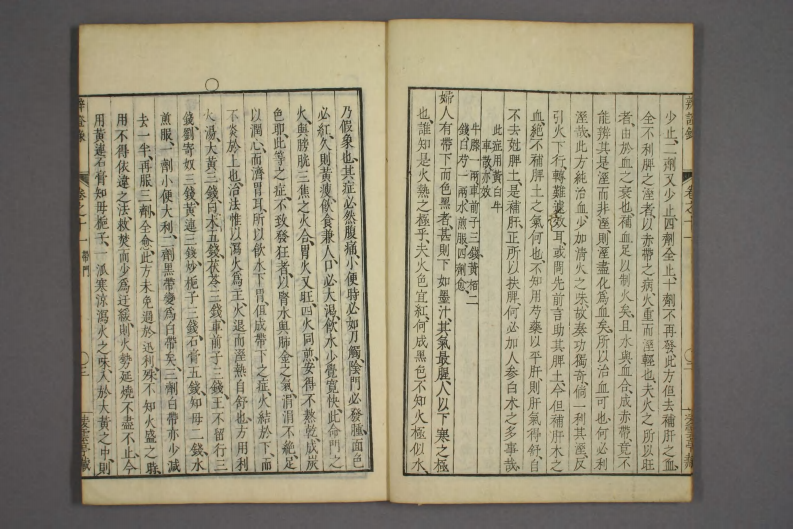 少止、二劑又少止、四劑全止、十劑不再發、此方但去補肝之血、
全不利脾之溼者、以赤帶之病火重而溼輕也、夫火之所以旺
者、由於血之衰也、補血足以制火矣、且水與血合成赤帶、竟不
能辨其是溼而非溼、則溼盡化為血矣、所以治血可也、何必利
溼哉、此方純治血、少加清火之味、故奏功獨奇、倘一利其溼、反
引火下行、轉難遽效耳、或問先前言助其脾土、今但補肝木之
血、絕不補脾土之氣何也、不知用芍藥以平肝、則肝氣得舒、自
不去尅脾土、是補肝正所以扶脾、何必加人參白朮之多事哉、
此症用黃白牛
車散亦效
牛膝一兩車前子三錢黃栢二
錢白芍一兩水煎服四劑愈
婦人有帶下而色黑者、甚則下如墨汁、其氣最腥、人以下寒之極
也、誰知是火熱之極乎、夫火色宜紅、何成黑色、不知火極似水、
乃假象也、其症必然腹痛、小便時必如刀觸、陰門必發腫、面色
必紅、久則黃瘦、飲食兼人、口必大渴、飲水少覺寬快、此命門之
火、與膀胱三焦之火合、胃火又旺、四火同煎、安得不熬乾成炭
色耶、此等之症、不致發狂者、以腎水與肺金之氣、涓涓不絕、足
以潤心而濟胃耳、所以飲水下胃、但成帶下之症、火結於下、而
不炎於上也、治法惟以瀉火為主、火退而溼熱自舒也、方用利
火湯、大黃三錢白朮五錢茯苓三錢車前子三錢王不留行三
錢劉寄奴三錢黃連三錢炒梔子三錢石膏五錢知母二錢水
煎服、一劑小便大利、二劑黑帶變為白帶矣、三劑白帶亦少減
去一半、再服三劑全愈、此方未免過於迅利、殊不知火盛之時、
用不得依違之法、救焚而少為迂緩、則火勢延燒、不盡不止、今
用黃連石膏知母梔子、一派寒涼瀉火之味、入於大黃之中、則
卷之十一 帶門
卷之十一
三